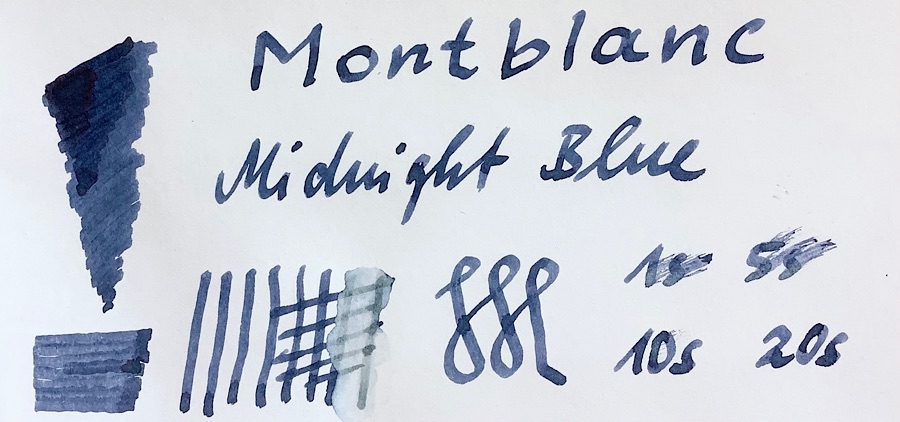 Montblanc
Midnight Blue
1s 5s
10s 20s